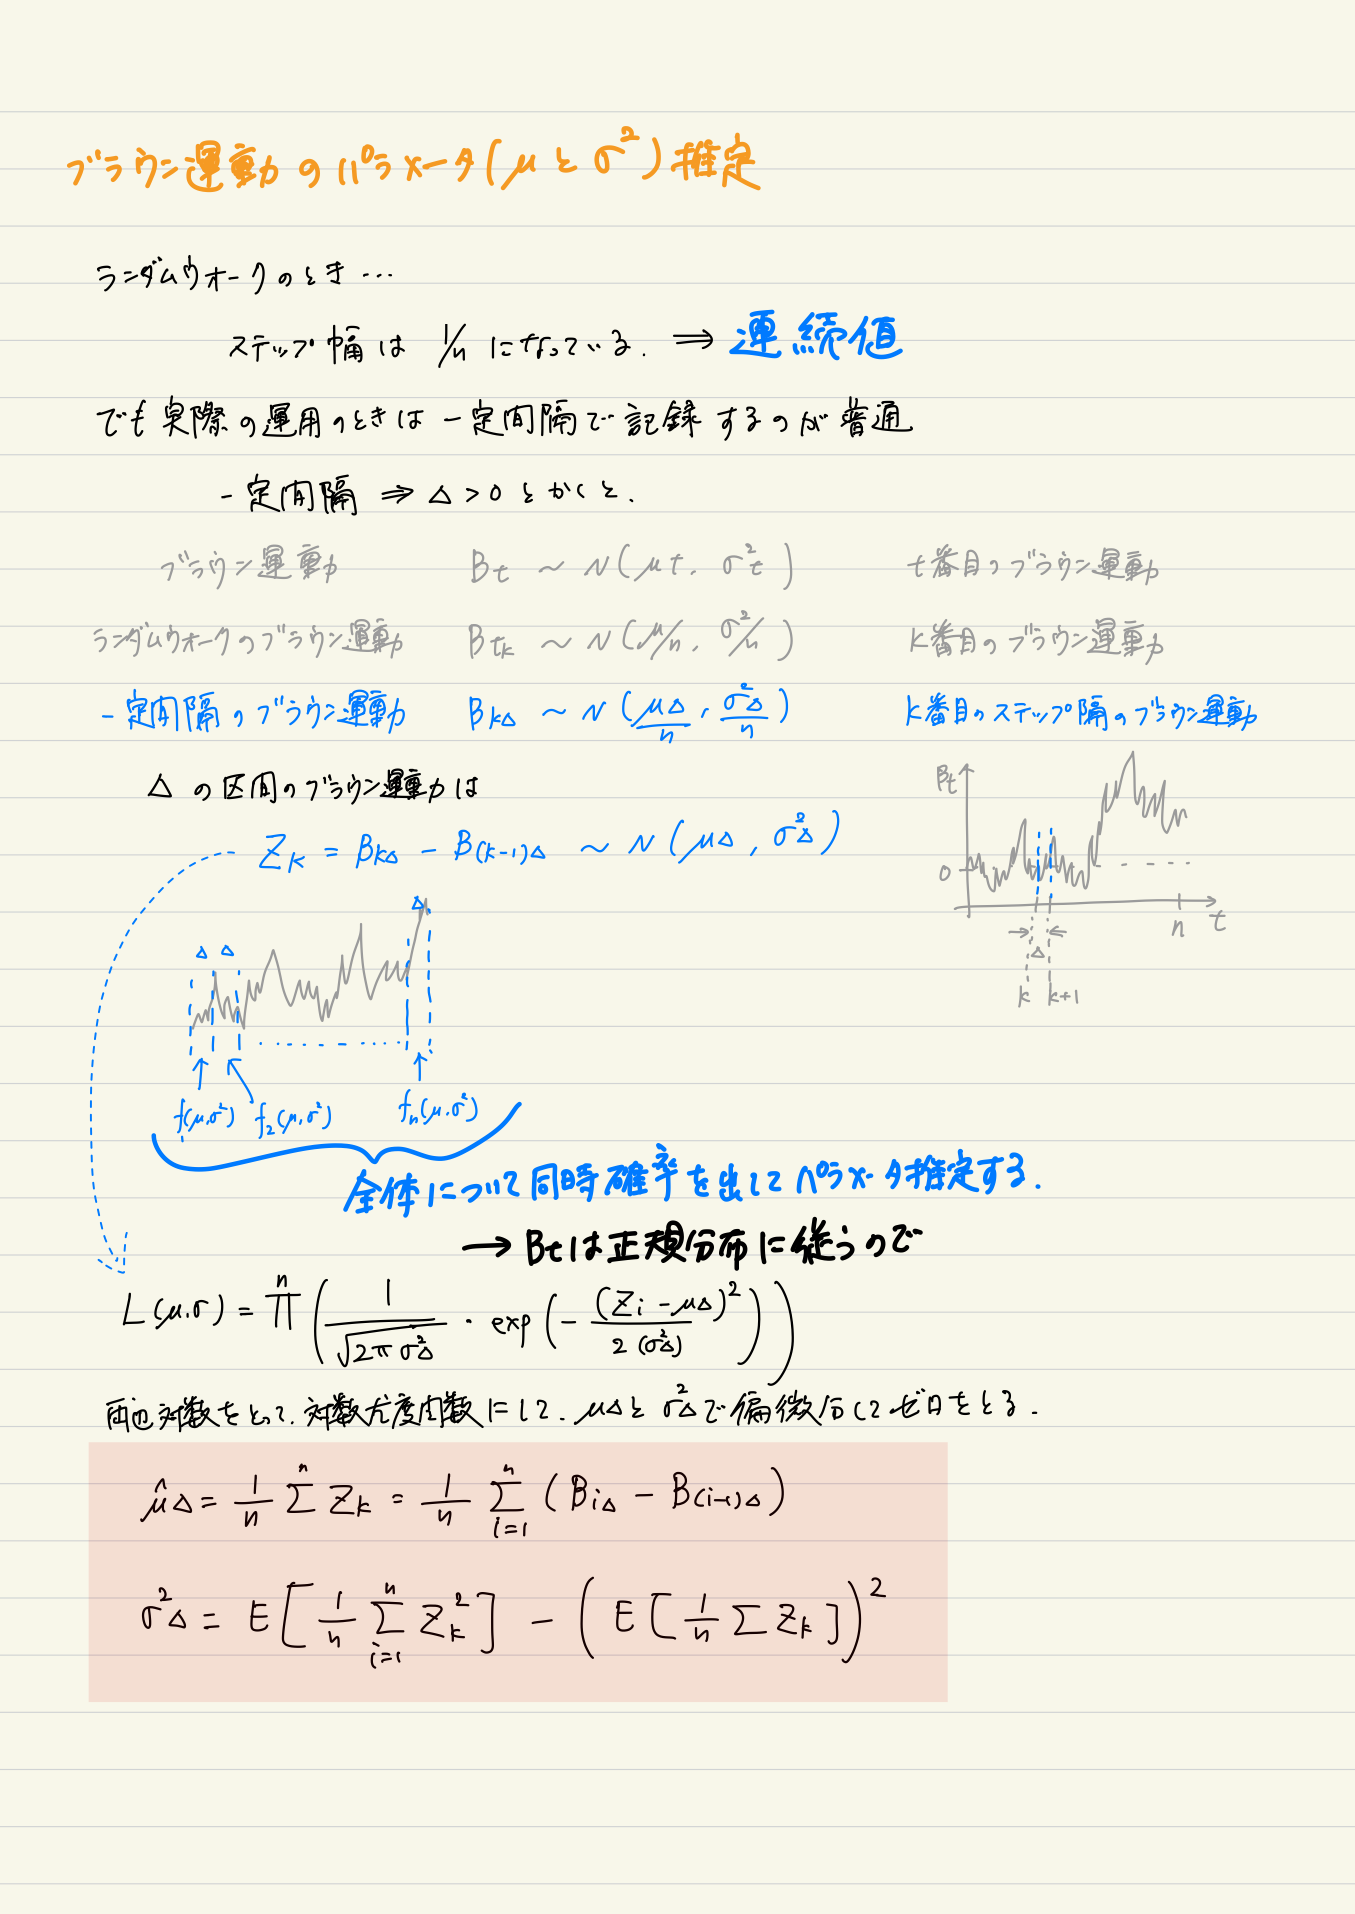 ブラウン運動のパラメータ(μとσ²)推定
ランダムウォークのとき…
ステップ幅は 1/n になっている. ⇒ 連続値
でも実際の運用のときは一定間隔で記録するのが普通
一定間隔 ⇒ Δ>0 とかくと.
ブラウン運動 Bt ~ N(μt, σ²t) t番目のブラウン運動
ランダムウォークのブラウン運動 Btk ~ N(μ/n, σ²/n) k番目のブラウン運動
一定間隔のブラウン運動 BkΔ ~ N(μΔ/n, σ²Δ/n) k番目のステップ隔のブラウン運動
Δ の区間のブラウン運動は
Zk = BkΔ − B(k−1)Δ ~ N(μΔ, σ²Δ)
Bt
0
n t
Δ
k k+1
Δ Δ Δ
f(μ,σ²) f₂(μ,σ²) fn(μ,σ²)
全体について同時確率を出してパラメータ推定する.
→ Btは正規分布に従うので
L(μ,σ) = Π^n ( 1/√(2πσ²Δ) · exp( − (Zi − μΔ)² / 2(σ²Δ) ) )
両辺対数をとって, 対数尤度関数にして, μΔとσ²Δで偏微分してゼロをとる.
μ̂Δ = 1/n Σ^n Zk = 1/n Σ_{i=1}^n (BiΔ − B(i−1)Δ)
σ²Δ = E[ 1/n Σ_{i=1}^n Zk² ] − ( E[ 1/n Σ Zk ] )²